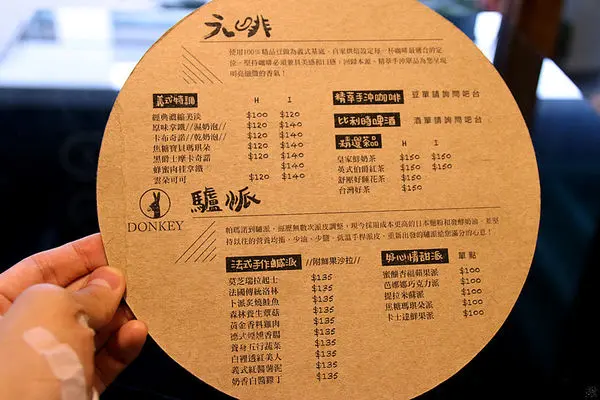 元啡
使用100%精品豆做為義式基底，自家烘焙設定每一杯咖啡最適合的定
位－堅持咖啡必須兼具美感和口感，回歸本源，精萃手沖單品為您呈現
明亮細微的香氣！
義式特調 H I
經典濃縮美淡 $100 $120
原味拿鐵//濕奶泡// $120 $140
卡布奇諾//乾奶泡// $120 $140
焦糖寶貝瑪琪朵 $120 $140
黑爵士摩卡奇諾 $120 $140
蜂蜜肉桂拿鐵 $120 $140
雲朵可可 $120 $140
精萃手沖咖啡 豆單請詢問吧台
比利時啤酒 酒單請詢問吧台
精選茶品 H I
皇家鮮奶茶 $150 $150
英式伯爵紅茶 $150 $150
舒壓好睡花茶 $150
台灣好茶 $150
DONKEY
驢派
帕瑪諾到驢派，經歷無數次派皮調整，現今採用成本更高的日本麵粉和發酵奶油，並堅
持以往的營養均衡、少油、少鹽、低溫手桿派皮，重新出發的驢派給您滿分的心意！
法式手作鹹派 //附鮮果沙拉//
莫芝瑞拉起士 $135
法國傳統洛林 $135
卜派炙燒鮭魚 $135
森林養生蕈菇 $135
黃金香料雞肉 $135
德式煙燻香腸 $135
養身五行蔬菜 $135
白裡透紅美人 $135
義式紅醬薯泥 $135
奶香白醬雞丁 $135
好心情甜派 單點
蜜釀香福蘋果派 $100
芭娜娜巧克力派 $100
提拉米蘇派 $100
焦糖瑪琪朵派 $100
卡士達鮮果派 $100